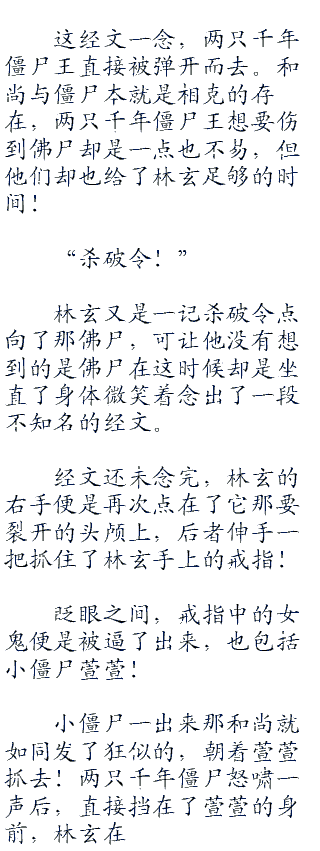 这经文一念，两只千年
僵尸王直接被弹开而去。和
尚与僵尸本就是相克的存
在，两只千年僵尸王想要伤
到佛尸却是一点也不易，但
他们却也给了林玄足够的时
间！
“杀破令！”
林玄又是一记杀破令点
向了那佛尸，可让他没有想
到的是佛尸在这时候却是坐
直了身体微笑着念出了一段
不知名的经文。
经文还未念完，林玄的
右手便是再次点在了它那要
裂开的头颅上，后者伸手一
把抓住了林玄手上的戒指！
眨眼之间，戒指中的女
鬼便是被逼了出来，也包括
小僵尸萱萱！
小僵尸一出来那和尚就
如同发了狂似的，朝着萱萱
抓去！两只千年僵尸怒啸一
声后，直接挡在了萱萱的身
前，林玄在